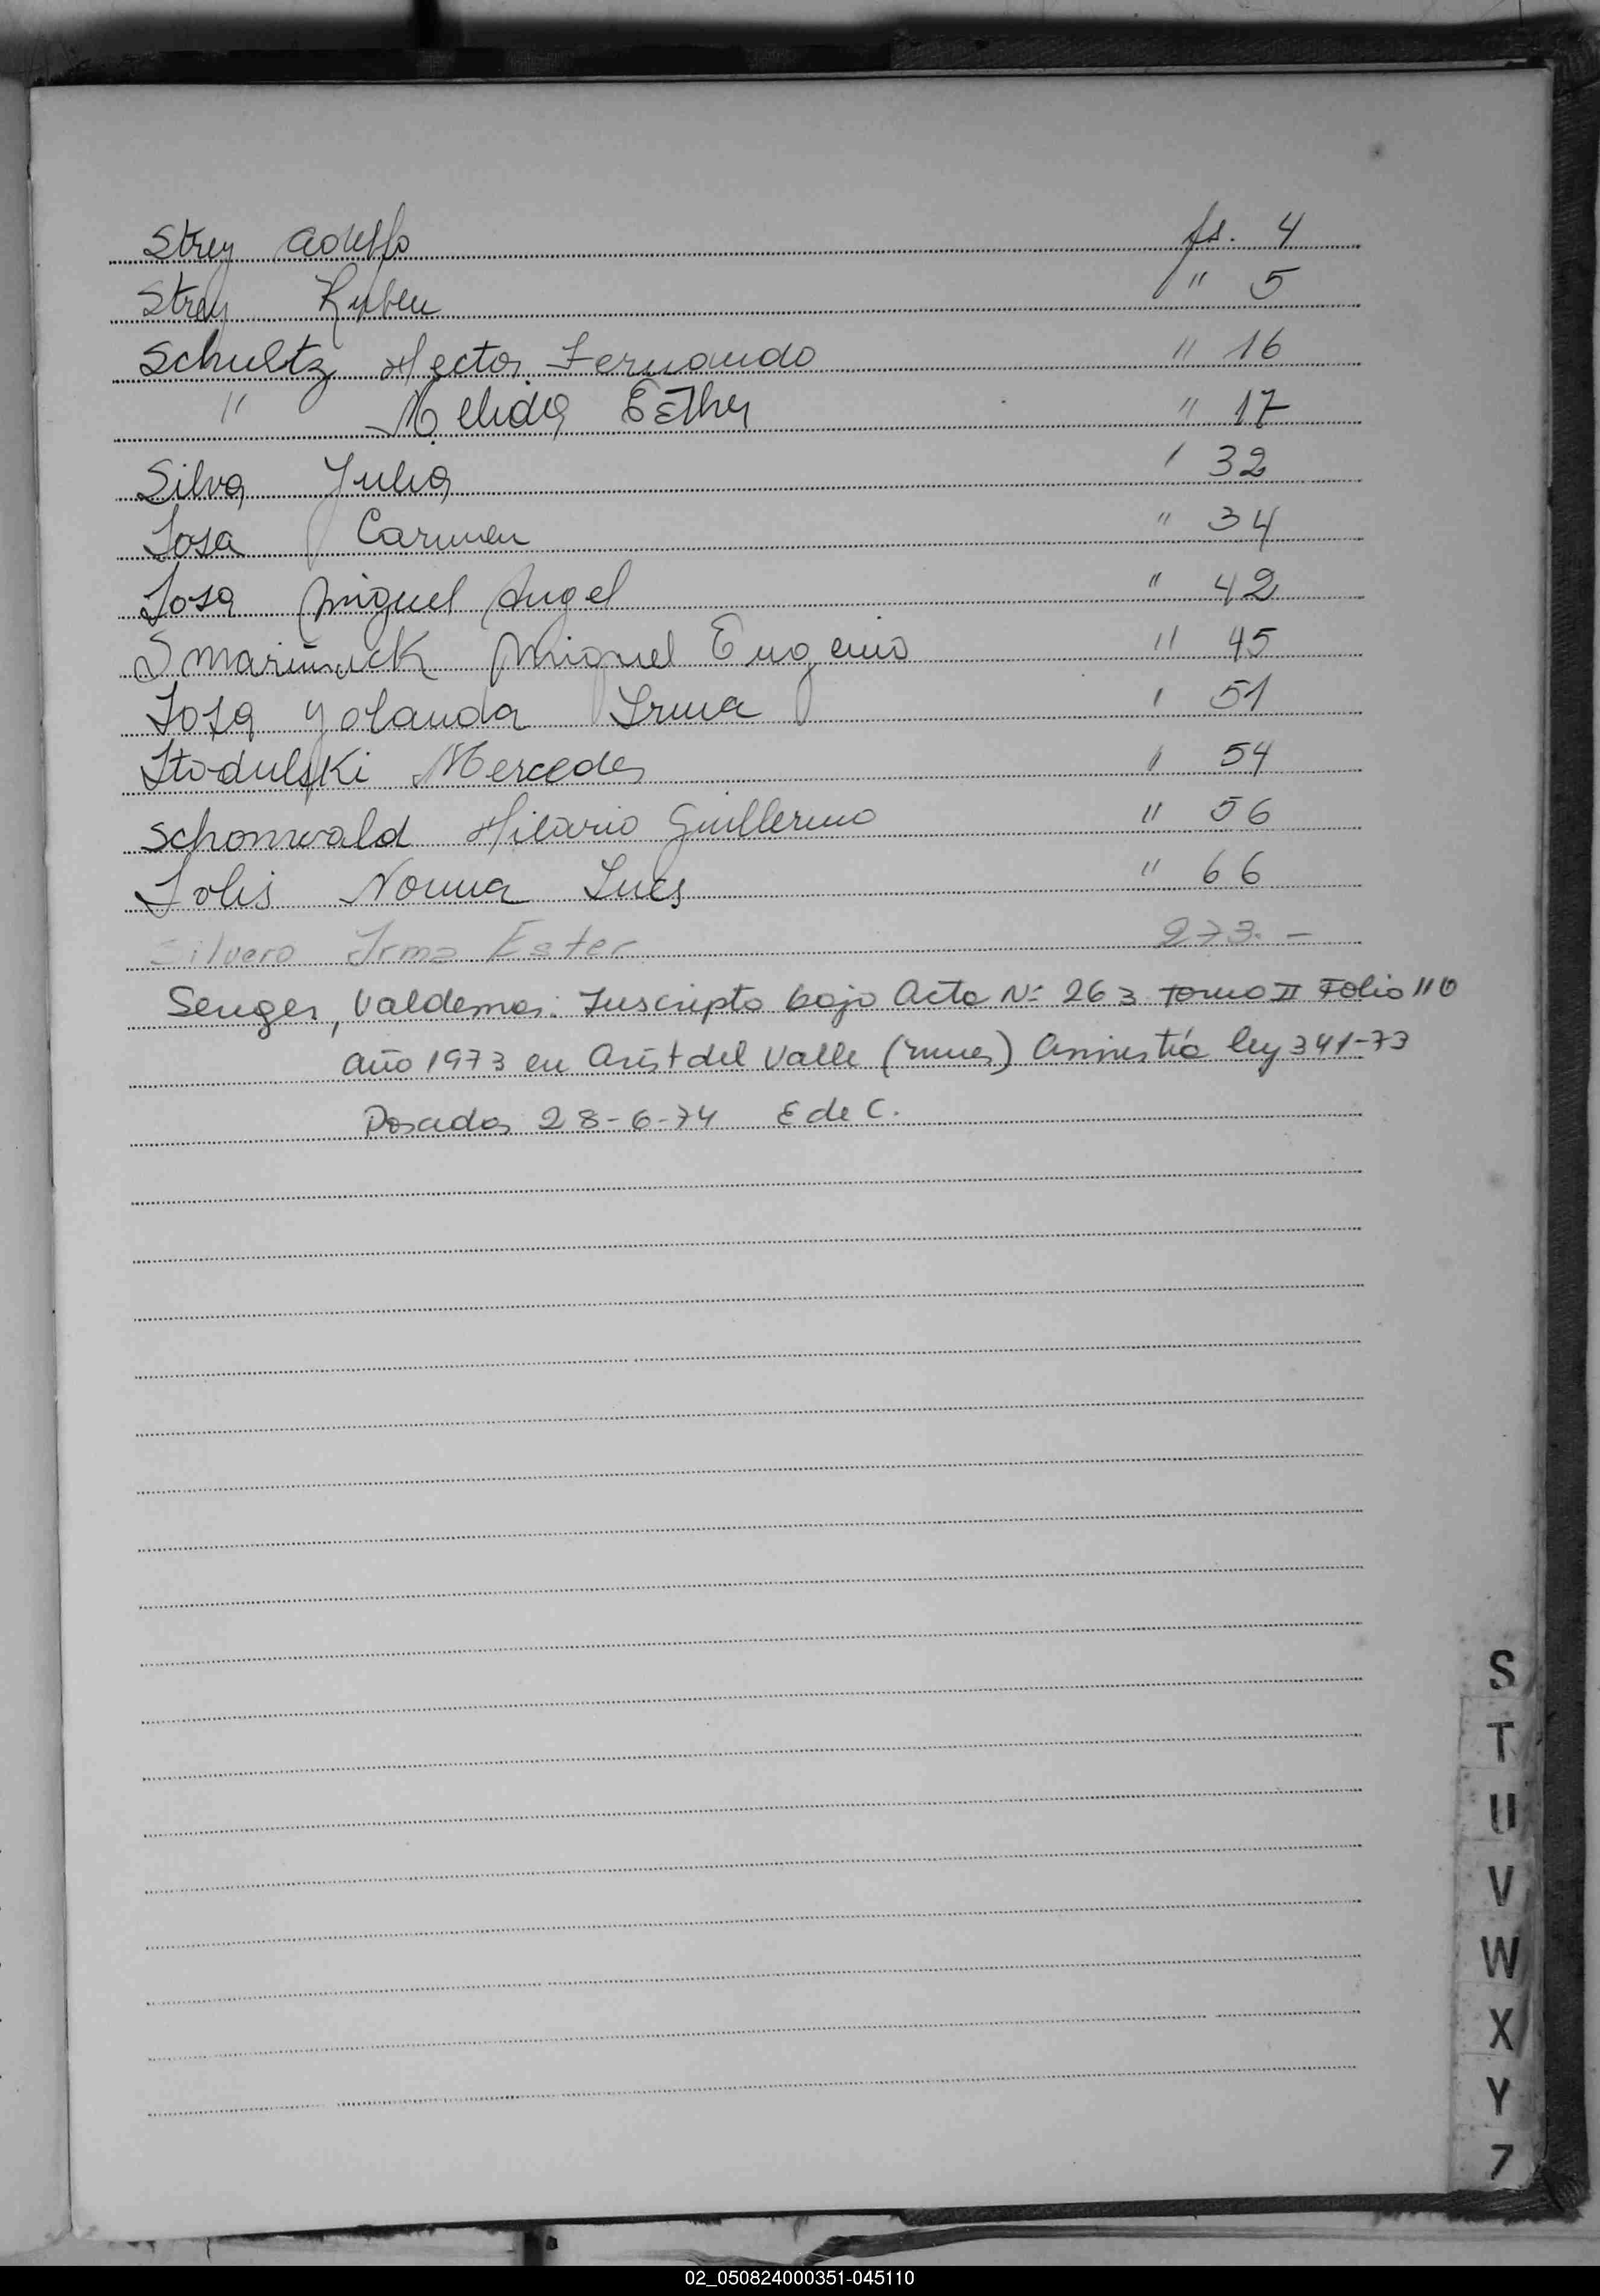 Strey Adolfo fs. 4
Strey Ruben " 5
Schultz Hector Fernando " 16
" Nelida Esther " 17
Silva Julia " 32
Sosa Carmen " 34
Sosa Miguel Angel " 42
Smariñuck Miguel Eugenio " 45
Sosa Yolanda Irma " 51
Stodulski Mercedes " 54
Schonwald Hilario Guillermo " 56
Solis Norma Inés " 66
Silvero Irma Ester 273.-
Senger, Valdemar: Inscripto bajo Acta Nº 263 Tomo II Folio 110
año 1973 en Arist del Valle (mnes) Amnistía ley 341-73
Posadas 28-6-74 E de C.
S
T
U
V
W
X
Y
Z
02_050824000351-045110